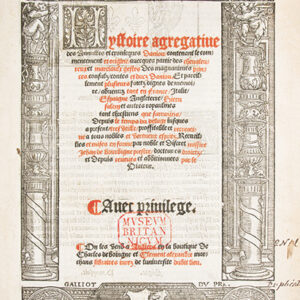 Hystoire agregatiue
des Annalles et cronicques Daniou contenant le com
mencement et origine auecques partie des cheualeu
reux et marciaulx gestes Des magnanimes prin
ces consulz, contes et ducz Daniou. Et pareil
lement plusieurs faictz dignes de memoi
re aduenuz tant en France, Italie
Espaigne Angleterre, Hieru
salem et autres royaulmes
tant chrestiens que sarrazins
Depuis le temps du deluge iusques
a present tresutille, proffitable et recreati
ue a tous nobles et Vertueux esperitz. Recueil
lies et mises en forme par noble et discret missire
Jehan de Bourdigne prestre, docteur es droictz
et Depuis reueues et additionnees par le
Viateur.
Auec priuilege.
MVSEVM
BRITAN
NICVM
On les Vend a Angiers en la boutique De
Charles de boingne et Clement alexandre mar
chans iures de luniuersite dudit lieu.
GALLIOT DV PRE.